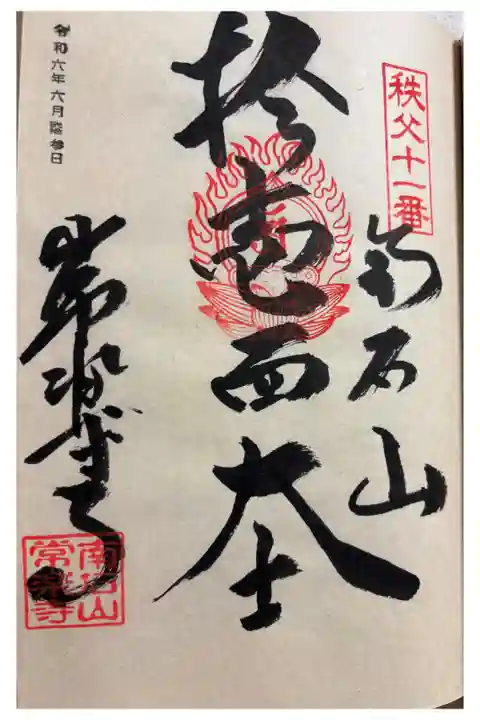 秩父十一番
南石山
拾壱面大士
常楽寺
令和六年六月
南石山
常楽寺